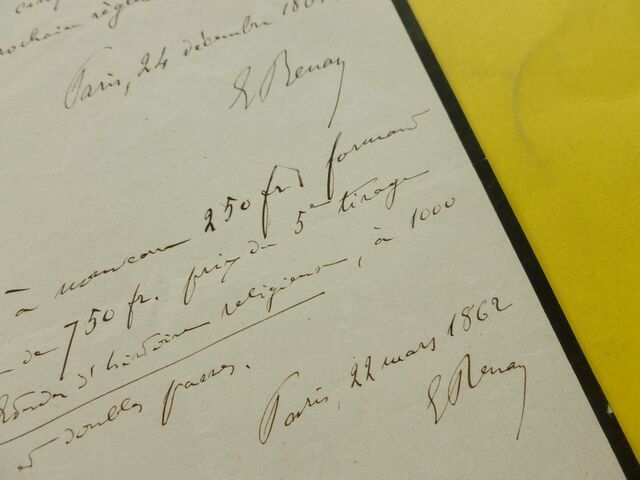 prochain règlem
Paris, 24 décembre 186
E Renan
à nouveau 250 frs formant
de 750 fr. prix du 5e tirage
Études d'histoire religieuse, à 1000
et doubles passes.
Paris, 22 mars 1862
E Renan